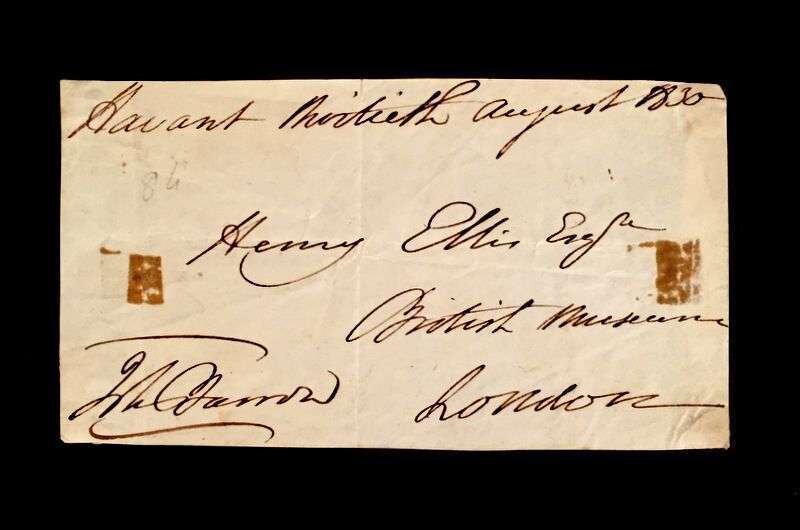 Havant thirtieth August 1830
84
Henry Ellis Esqre
British Museum
London